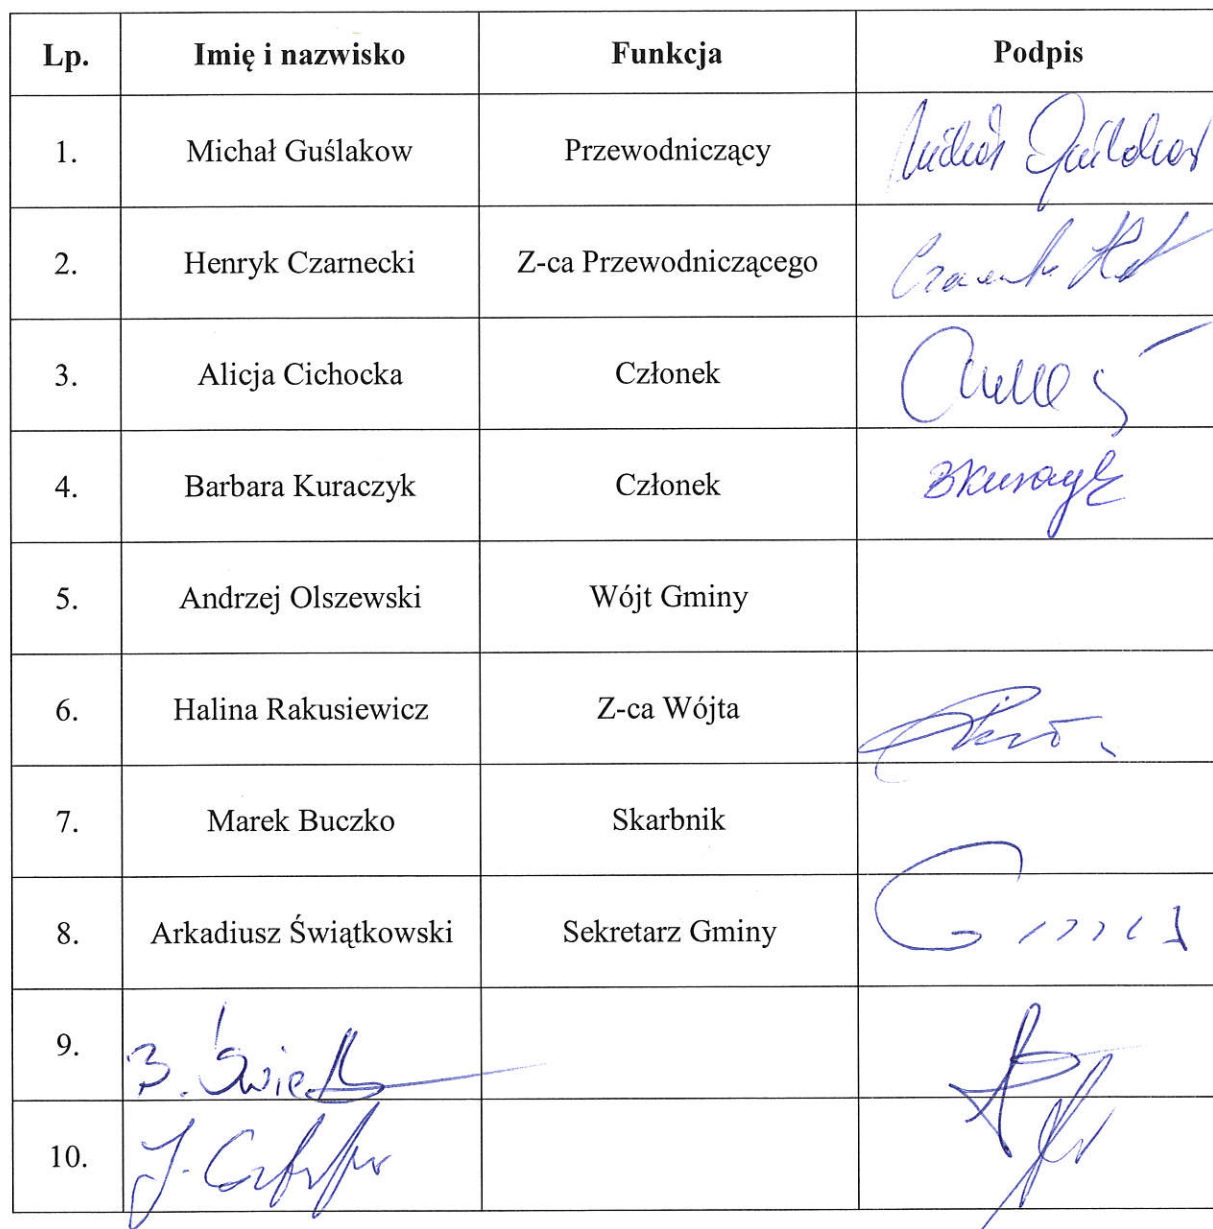 Lp. Imię i nazwisko Funkcja Podpis
1. Michał Guślakow Przewodniczący
2. Henryk Czarnecki Z-ca Przewodniczącego
3. Alicja Cichocka Członek
4. Barbara Kuraczyk Członek BKuraczyk
5. Andrzej Olszewski Wójt Gminy
6. Halina Rakusiewicz Z-ca Wójta
7. Marek Buczko Skarbnik
8. Arkadiusz Świątkowski Sekretarz Gminy
9. B.
10. J.